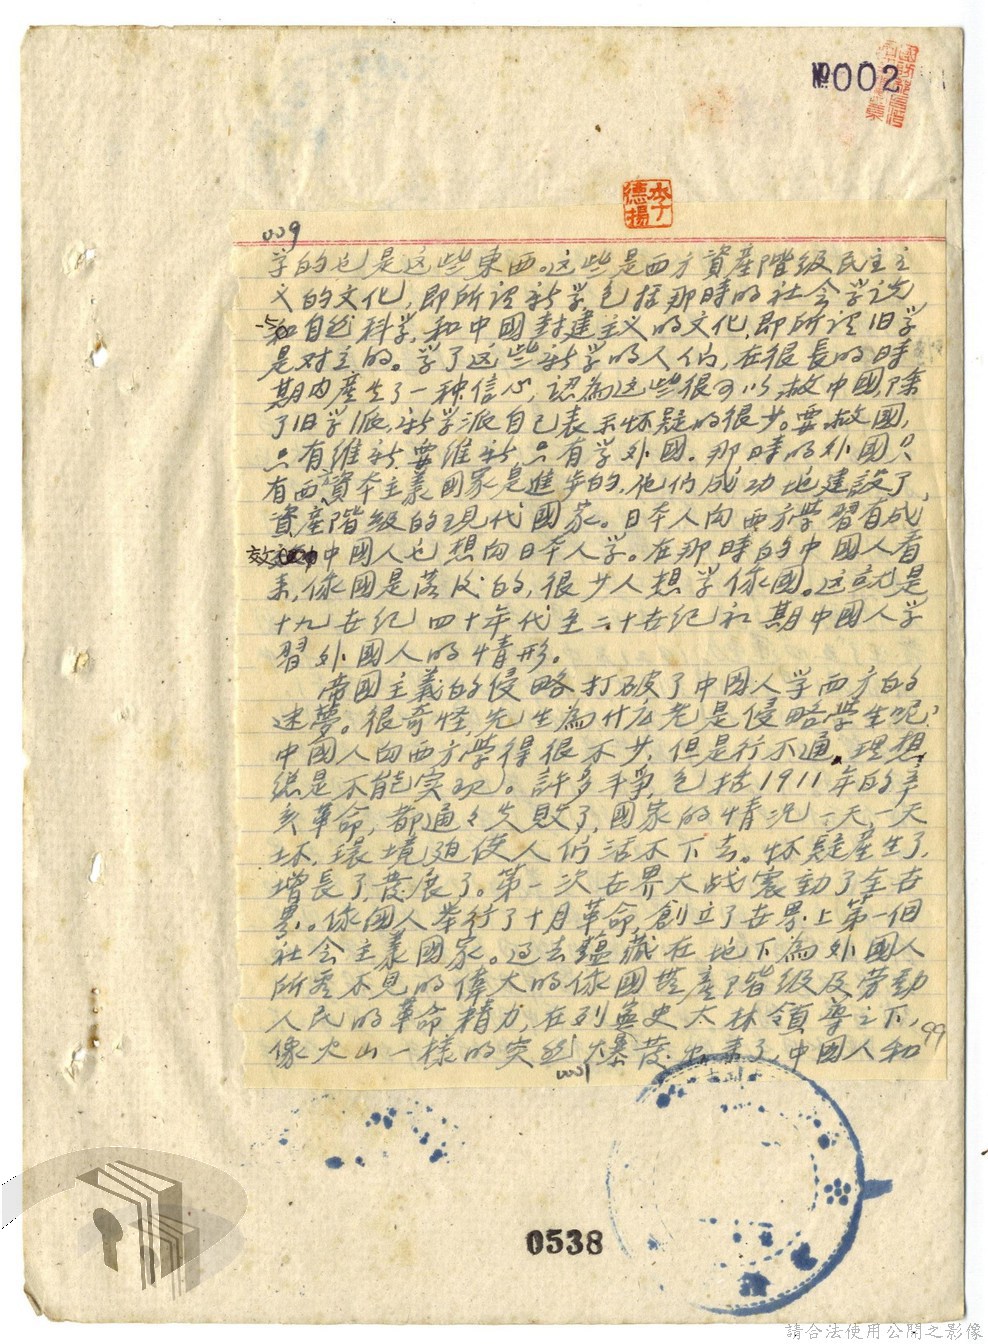 №002
李德揚
009
学的也是这些東西。这些是西方資産階级民主主
义的文化,即所謂新学,包括那時的社会学说
和自然科学,和中國封建主义的文化,即所謂旧学
是对立的。学了这些新学的人们,在很長的時
期内産生了一种信心,認為这些很可以救中國,除
了旧学派,新学派自己表示怀疑的很少。要救國,
只有維新,要維新只有学外國。那時的外國只
有西方資本主義國家是進步的,他们成功地建設了
資産階级的现代國家。日本人向西方学習有成
效,中國人也想向日本人学。在那時的中國人看
来,俄國是落后的,很少人想学俄國。这就是
十九世纪四十年代至二十世纪初期中國人学
習外國人的情形。
帝國主義的侵略打破了中國人学西方的
迷夢。很奇怪,先生為什么老是侵略學生呢?
中國人向西方學得很不少,但是行不通,理想
總是不能实现。許多斗爭,包括1911年的辛
亥革命,都通々失敗了,國家的情况一天一天
坏,環境迫使人们活不下去。怀疑産生了,
增長了,發展了。第一次世界大战震動了全世
界。俄國人举行了十月革命,創立了世界上第一個
社会主義國家。过去蕴藏在地下為外國人
所看不見的偉大的俄國無産階级及劳動
人民的革命精力,在列寧史太林領導之下,
像火山一樣的突然爆發出来了,中國人和
99
0001
0538
請合法使用公開之影像